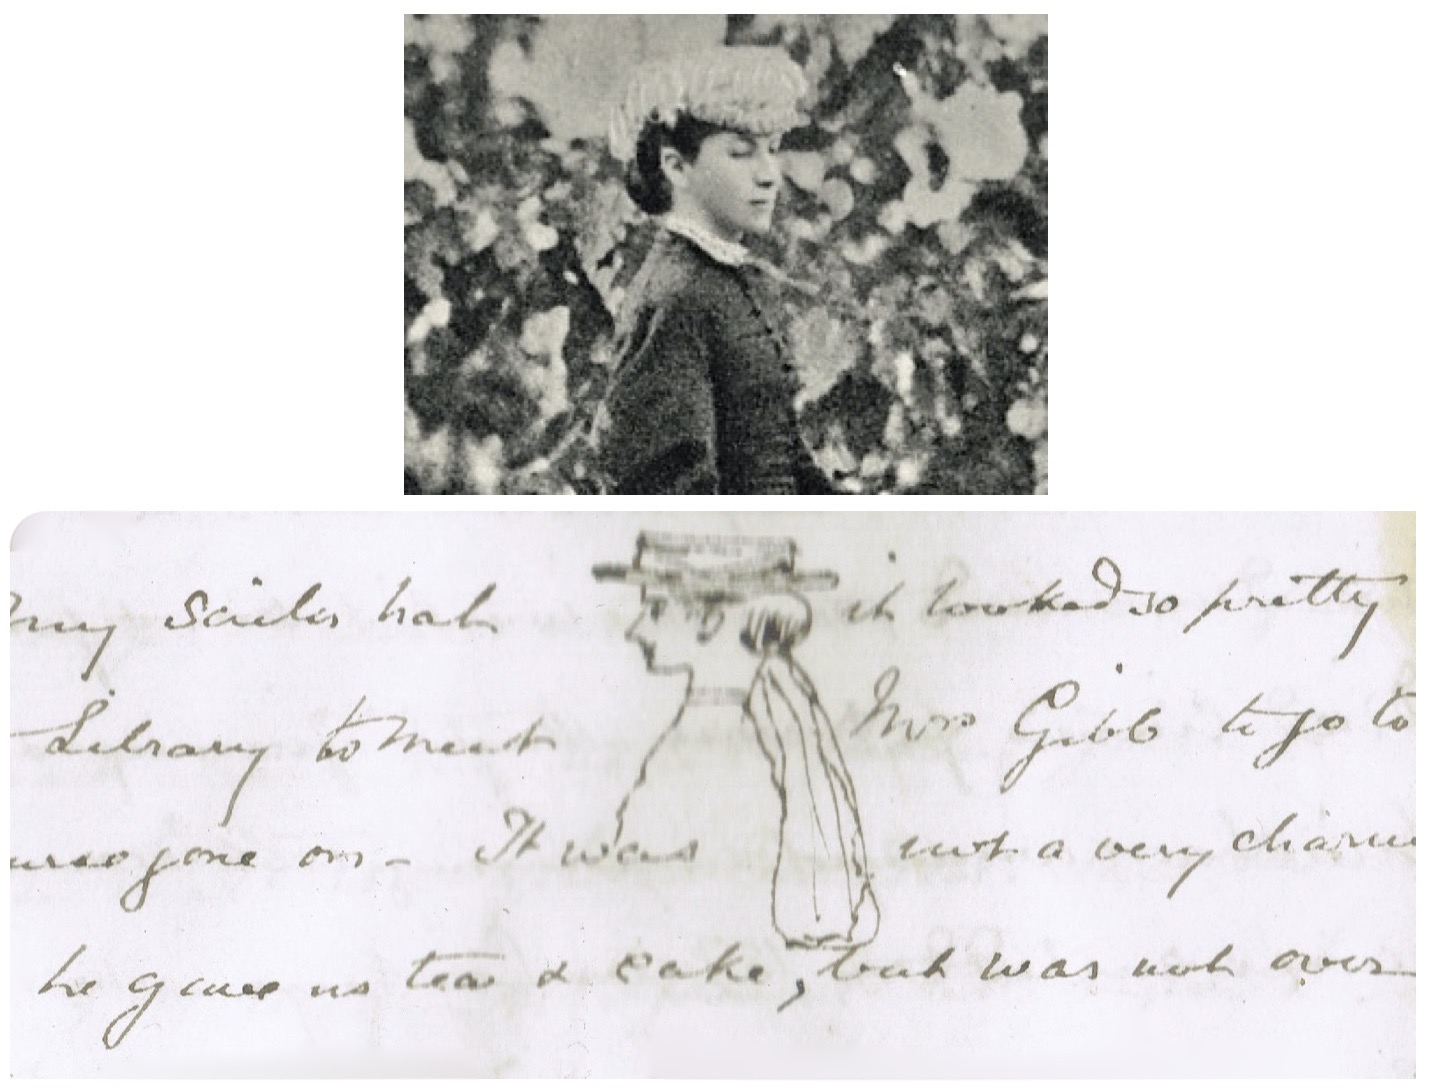 my sailor hat it looked so pretty
Library to meet Mrs Gibb to go to
gone on - It was not a very
he gave us tea & cake, but was not over